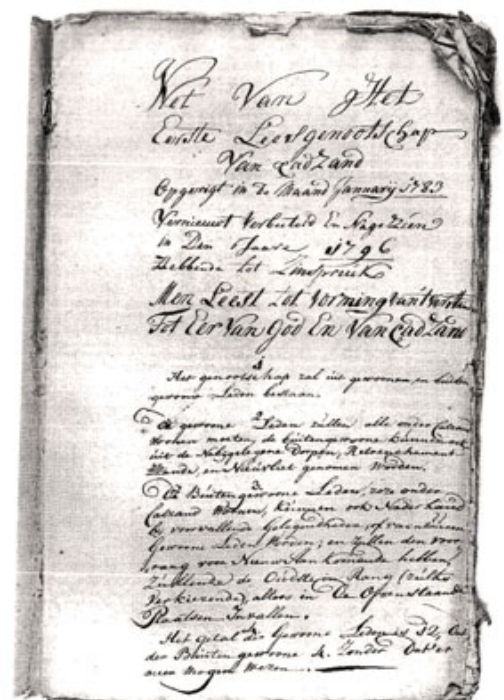 Wet Van Het
Eerste Leesgenootschap
Van CadZand
Opgerigt in de Maand January 1783
Vernieuwt Verbeterd En NageZien
in Den Jaare 1796
Hebbende tot Zinspreuk
Men Leest tot Vorming van't Verstan
Tot Eer Van God En Van CadZand
1
Het genootschap zal uit gewoonen en buiten
gewoone Leden bestaan.
2
De gewoone Leden zullen alle onder Cadzand
woonen moeten, de buitengewoone kunnen ook
uit de Nabygelegene Dorpen, Retranchement
en Nieuvliet genomen worden.
3
De Buitengewoone Leden, zoo onder
Cadzand wonen, kunnen ook Naderhand
by voorvallende Gelegendheden, of vacaturen
Gewoone Leden Worden; en zullen den voor
rang voor Nieuw Aankomende hebben,
Zullende de Oudste in Rang (zulks
Verkiezende), altoos in De Openstaande
Plaatsen Invallen.
Het getal der Gewoone Leden is 12,
der Buitengewoone 4. Zonder
meer Mogen Wezen.